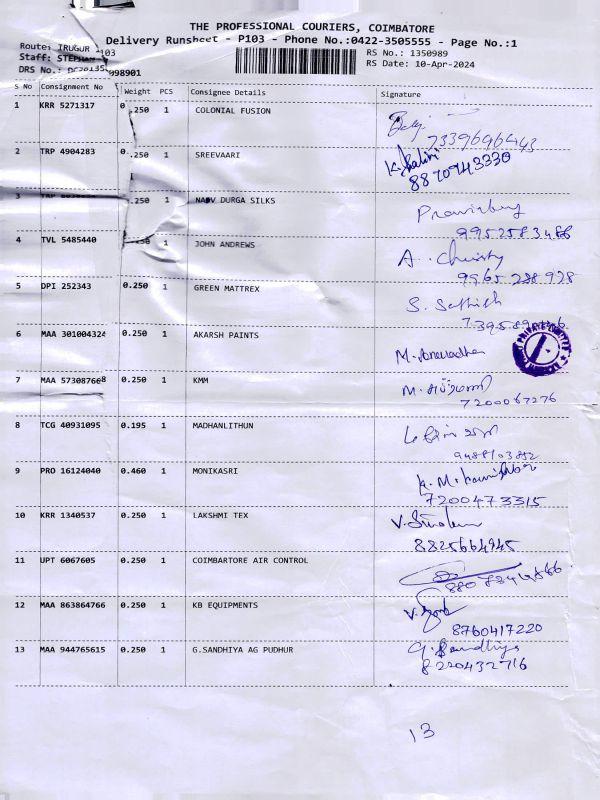 THE PROFESSIONAL COURIERS, COIMBATORE
Delivery Runsheet - P103 - Phone No.:0422-3505555 - Page No.:1
Route: IRUGUR P103 RS No.: 1350989
Staff: RS Date: 10-Apr-2024
DRS No.:
S No Consignment No Weight PCS Consignee Details Signature
1 KRR 5271317 0.250 1 COLONIAL FUSION
7339696443
2 TRP 4904283 0.250 1 SREEVAARI K. Shalini
8870943330
3 .250 1 NAVV DURGA SILKS
9952583486
4 TVL 5485440 1 JOHN ANDREWS A. Christy
9965 288 978
5 DPI 252343 0.250 1 GREEN MATTREX S. Sathish
6 MAA 301004324 0.250 1 AKARSH PAINTS M. Anuradha
PRIVATE LIMITED
7 MAA 573087668 0.250 1 KMM
7200067276
8 TCG 40931095 0.195 1 MADHANLITHUN
9488103852
9 PRO 16124040 0.460 1 MONIKASRI
7200473315
10 KRR 1340537 0.250 1 LAKSHMI TEX
8825664945
11 UPT 6067605 0.250 1 COIMBARTORE AIR CONTROL
12 MAA 863864766 0.250 1 KB EQUIPMENTS
8760417220
13 MAA 944765615 0.250 1 G.SANDHIYA AG PUDHUR G. Sandhiya
8220432716
13